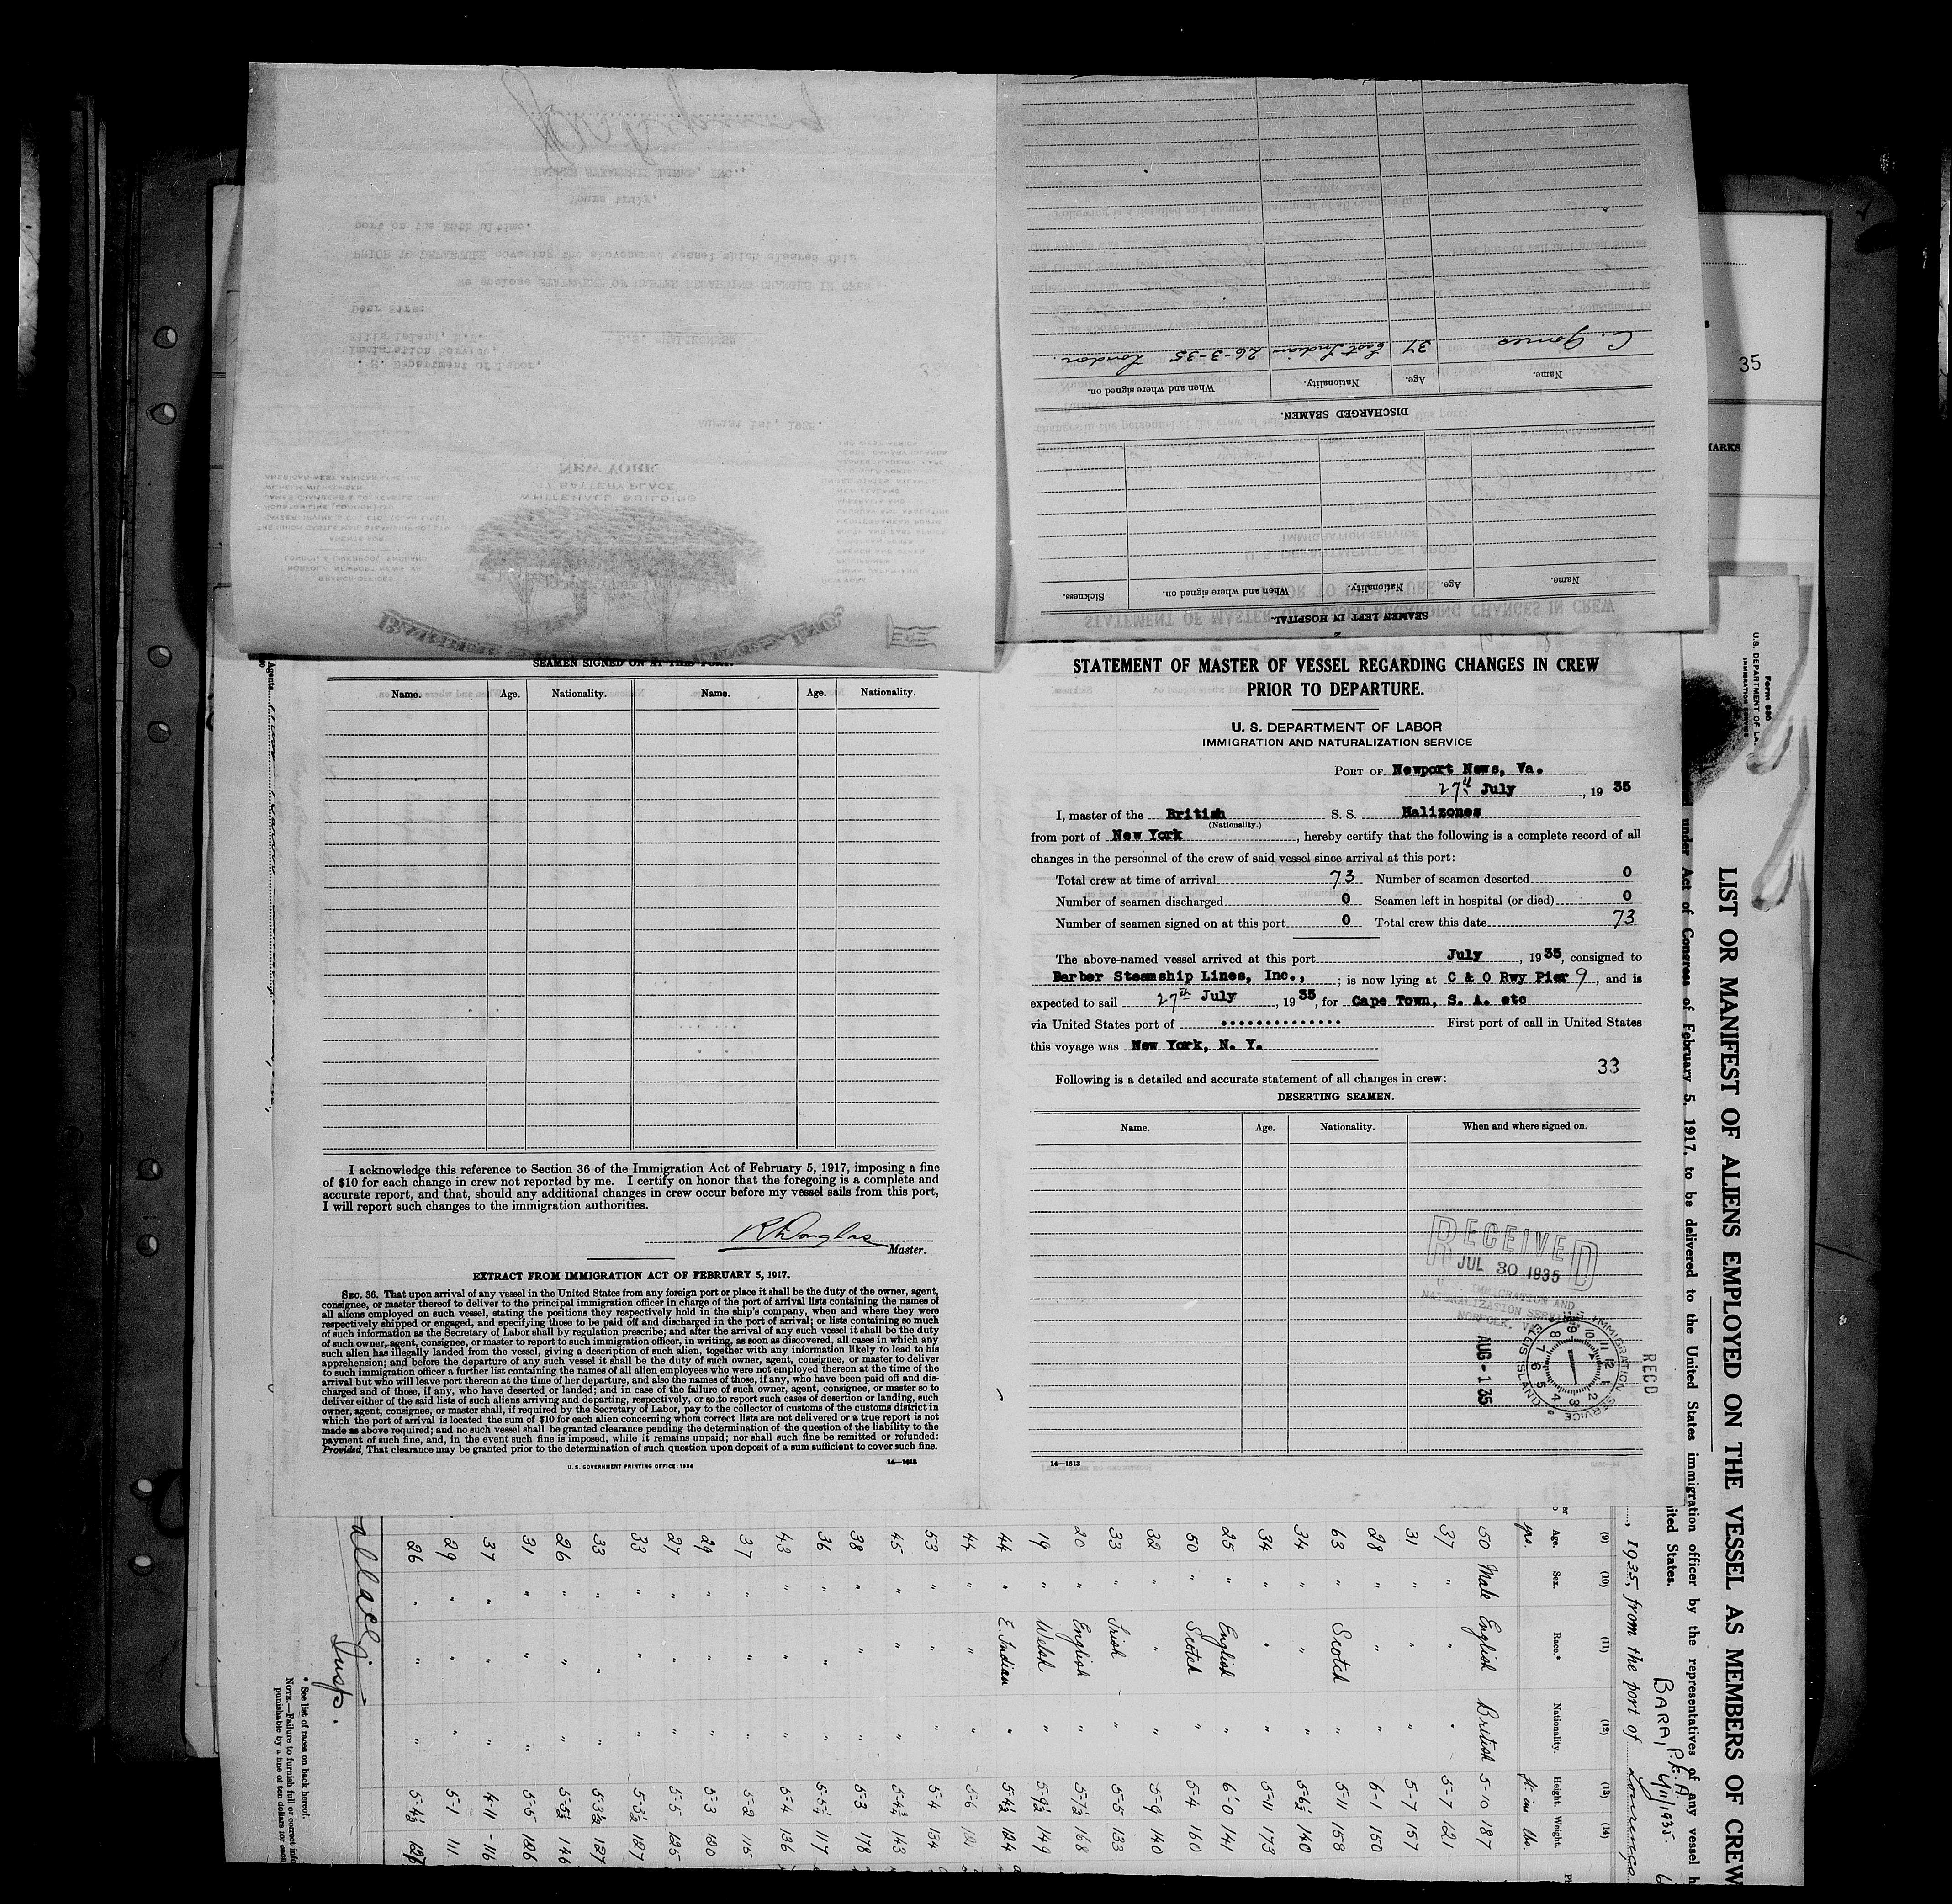 SEAMEN LEFT IN HOSPITAL.
Name. Age. Nationality. When and where signed on. Sickness.
DISCHARGED SEAMEN.
Name. Age. Nationality. When and where signed on.
C. Gomes 37 East Indian 26-3-35 London.
35
MARKS
August 1st, 1935.
Dear Sirs:
Yours truly,
NEW YORK
17 BATTERY PLACE
WHITEHALL BUILDING
SEAMEN SIGNED ON AT THIS PORT.
Name. Age. Nationality. Name. Age. Nationality.
I acknowledge this reference to Section 36 of the Immigration Act of February 5, 1917, imposing a fine
of $10 for each change in crew not reported by me. I certify on honor that the foregoing is a complete and
accurate report, and that, should any additional changes in crew occur before my vessel sails from this port,
I will report such changes to the immigration authorities.
R Douglas
Master.
EXTRACT FROM IMMIGRATION ACT OF FEBRUARY 5, 1917.
SEC. 36. That upon arrival of any vessel in the United States from any foreign port or place it shall be the duty of the owner, agent,
consignee, or master thereof to deliver to the principal immigration officer in charge of the port of arrival lists containing the names of
all aliens employed on such vessel, stating the positions they respectively hold in the ship's company, when and where they were
respectively shipped or engaged, and specifying those to be paid off and discharged in the port of arrival; or lists containing so much
of such information as the Secretary of Labor shall by regulation prescribe; and after the arrival of any such vessel it shall be the duty
of such owner, agent, consignee, or master to report to such immigration officer, in writing, as soon as discovered, all cases in which any
such alien has illegally landed from the vessel, giving a description of such alien, together with any information likely to lead to his
apprehension; and before the departure of any such vessel it shall be the duty of such owner, agent, consignee, or master to deliver
to such immigration officer a further list containing the names of all alien employees who were not employed thereon at the time of the
arrival but who will leave port thereon at the time of her departure, and also the names of those, if any, who have been paid off and dis-
charged and of those, if any, who have deserted or landed; and in case of the failure of such owner, agent, consignee, or master so to
deliver either of the said lists of such aliens arriving and departing, respectively, or so to report such cases of desertion or landing, such
owner, agent, consignee, or master, shall, if required by the Secretary of Labor, pay to the collector of customs of the customs district in
which the port of arrival is located the sum of $10 for each alien concerning whom correct lists are not delivered or a true report is not
made as above required; and no such vessel shall be granted clearance pending the determination of the question of the liability to the
payment of such fine, and, in the event such fine is imposed, while it remains unpaid; nor shall such fine be remitted or refunded:
Provided, That clearance may be granted prior to the determination of such question upon deposit of a sum sufficient to cover such fine.
U.S. GOVERNMENT PRINTING OFFICE: 1934 14—1613
STATEMENT OF MASTER OF VESSEL REGARDING CHANGES IN CREW
PRIOR TO DEPARTURE.
U. S. DEPARTMENT OF LABOR
IMMIGRATION AND NATURALIZATION SERVICE
PORT OF Newport News, Va.
27th July, 1935
I, master of the British S. S. Halizones
(Nationality.)
from port of New York, hereby certify that the following is a complete record of all
changes in the personnel of the crew of said vessel since arrival at this port:
Total crew at time of arrival 73 Number of seamen deserted 0
Number of seamen discharged 0 Seamen left in hospital (or died) 0
Number of seamen signed on at this port 0 Total crew this date 73
The above-named vessel arrived at this port July, 1935, consigned to
Barber Steamship Lines, Inc., ; is now lying at C & O Rwy Pier 9, and is
expected to sail 27th July, 1935, for Cape Town, S. A. etc
via United States port of .............. First port of call in United States
this voyage was New York, N. Y.
33
Following is a detailed and accurate statement of all changes in crew:
DESERTING SEAMEN.
Name. Age. Nationality. When and where signed on.
RECEIVED
JUL 30 1935
U.S. IMMIGRATION AND
NATURALIZATION SERVICE
NORFOLK, VA.
RECD
AUG-1 35
U.S. IMMIGRATION SERVICE
ELLIS ISLAND
14—1613
Form 680
U. S. DEPARTMENT OF LA
IMMIGRATION SERVICE
LIST OR MANIFEST OF ALIENS EMPLOYED ON THE VESSEL AS MEMBERS OF CREW
under Act of Congress of February 5, 1917, to be delivered to the United States immigration officer by the representatives of any vessel h
ited States.
BARA, P. E. A. 6/11/1935.
, 1935, from the port of Lourenço
(9) (10) (11) (12) (13) (14)
Age. Sex. Race.* Nationality. Height. Weight.
yrs. ft. ins lbs.
50 Male English British 5-10 187
37 " " " 5-7 121
31 " " " 5-7 157
28 " " " 6-1 150
63 " Scotch " 5-11 158
34 " " " 5-6½ 140
34 " " " 5-11 173
25 " English " 6-0 141
50 " Scotch " 5-4 160
32 " " " 5-9 140
33 " Irish " 5-5 133
20 " English " 5-7½ 168
19 " Welsh " 5-9½ 149
44 " E. Indian " 5-4½ 124
44 " " " 5-6
53 " " " 5-4 134
45 " " " 5-4¾ 143
38 " " " 5-3 178
36 " " " 5-5½ 117
43 " " " 5-4 136
37 " " " 5-2 115
29 " " " 5-3 120
27 " " " 5-5 125
33 " " " 5-3½ 127
33 " " " 5-3½ 127
26 " " " 5-5½ 146
31 " " " 5-5 126
37 " " " 4-11 116
29 " " " 5-1 111
26 " " " 5-4½
Insp.
* See list of races on back hereof.
NOTE.—Failure to furnish full or correct info
punishable by a fine of ten dollars for each